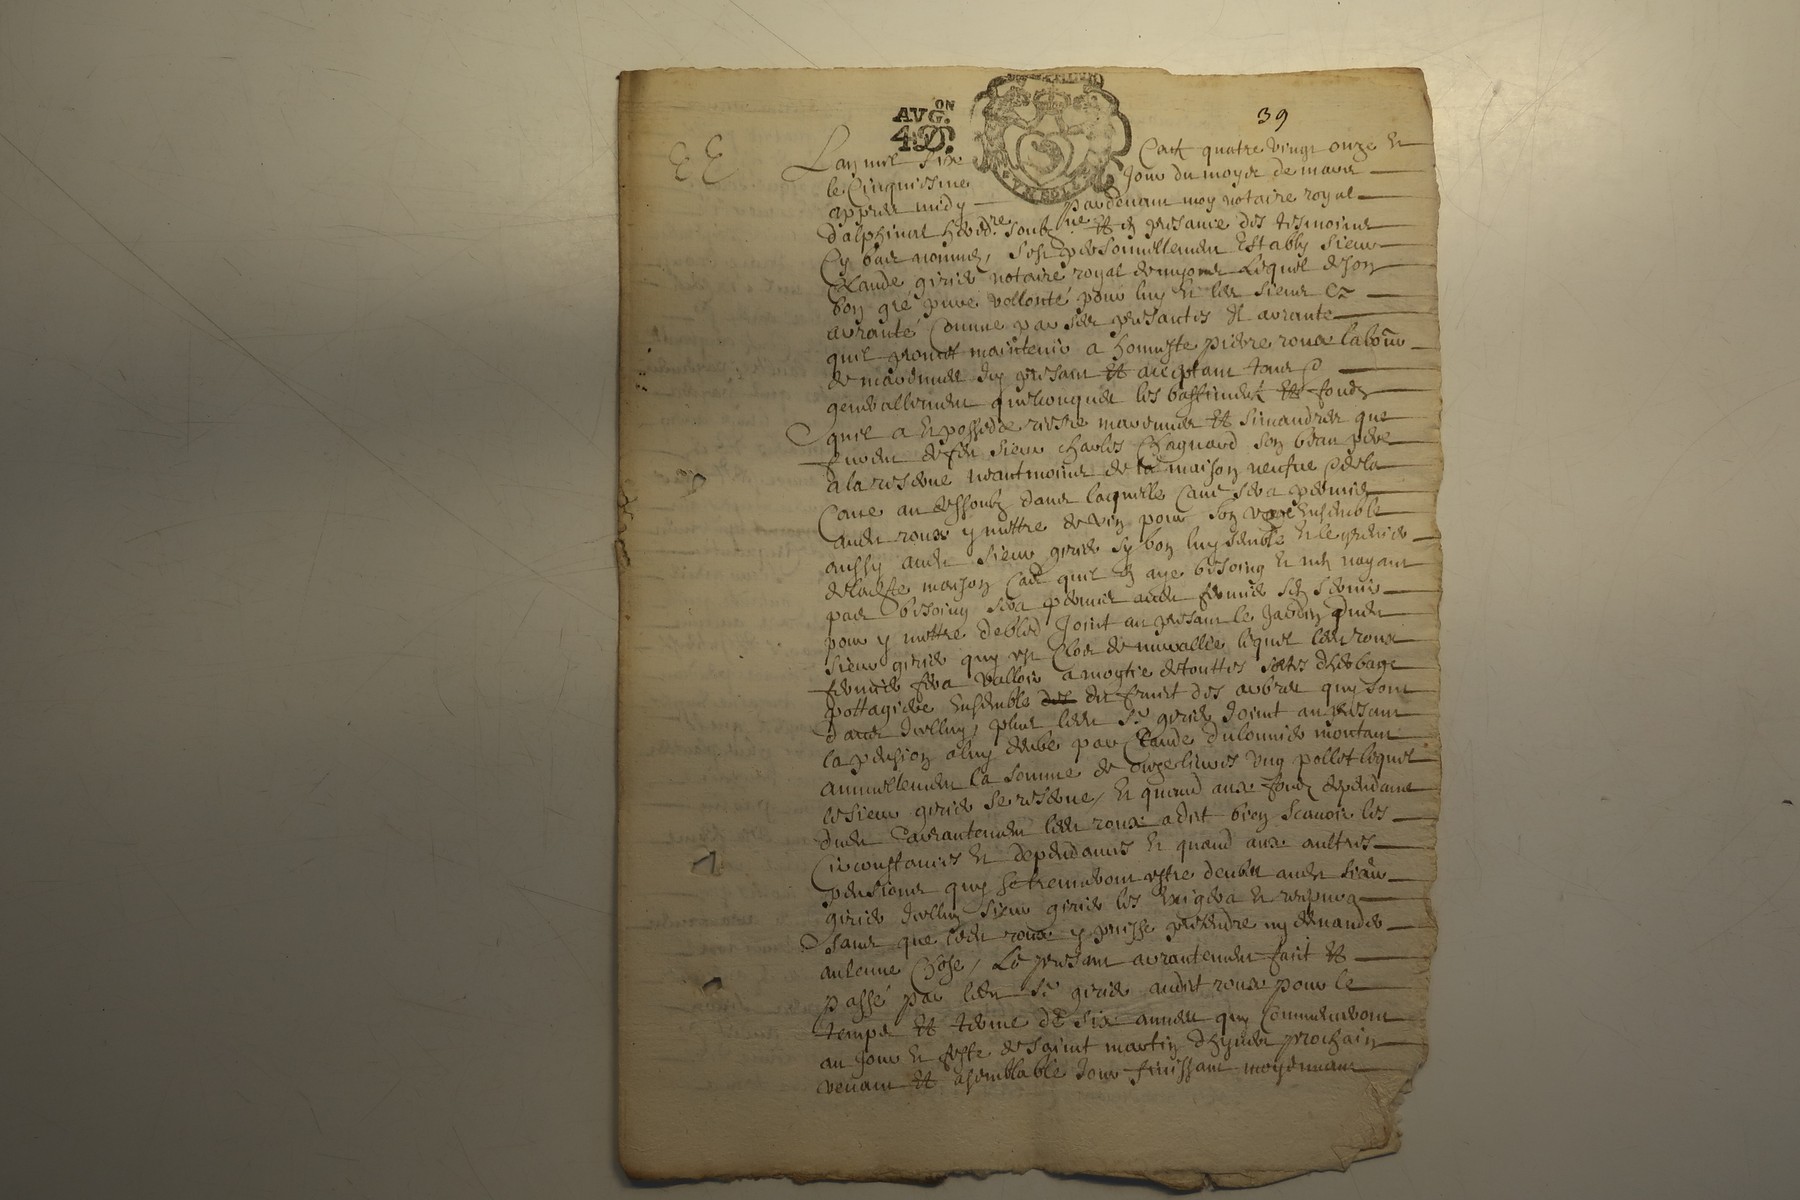 AVG.ON
4 D.
39
L'an mil six Cent quatre vingt onze et
le Cinquiesme Jour du moys de mars
appres midy pardevant moy notaire royal
dalphinal héréd.re soubz.né et en presance des tesmoins
Cy bas nommes, s'est personnellement estably sieur
Claude girier notaire royal lequel de son
bon gré pure vollonté pour luy et les siens a
arranté Comme par ses presantes il arrante
quil promet maintenir a honneste pierre roux labour
de marennes Icy presant et acceptant tous
generallement quelconques les bastiments et fonds
quil a et possede riere marennes et simandres que
furent de feu sieur Charles Chagnard son beau pere
a la reserve neantmoins de la maison neufve de la
Cave au dessoubz dans laquelle Cave sera permis
audit roux y mettre de vin pour son Ensemble
aussy audit sieur girier sy bon luy semble et le grenier
de ladite maison Cas quil en aye besoing et nen nayant
pas besoing sera permis audit fermier sen servir
pour y mettre de bled Joint au presant le Jardin dudit
sieur girier quy est Clos de muraille lequel ledit roux
fermier fera valloir a moytie de touttes sortes dherbage
pottagiere Ensemble du fruit des arbres quy sont
dans Icelluy, plus ledit Sr girier Joint au presant
la pension a luy deube par Claude dulonnier montant
annuellement la somme de livres ung pollet lequel
le sieur girier se reserve, et quand aux fonds dependants
dudit arrantement ledit roux a dit bien scavoir les
Circonstances et dependances et quand aux aultres
pensions quy se treuveront estre deubes audit sieur
girier Icelluy sieur girier les Exigera et
sans que ledit roux y puisse pretendre ny demander
aulcune Chose, Le presant arrantement fait et
passé par ledit Sr girier audit roux pour le
temps et terme de six annees quy Commenceront
au jour et feste de saint martin dhyver prochain
venant et a semblable Jour finissant moyennant